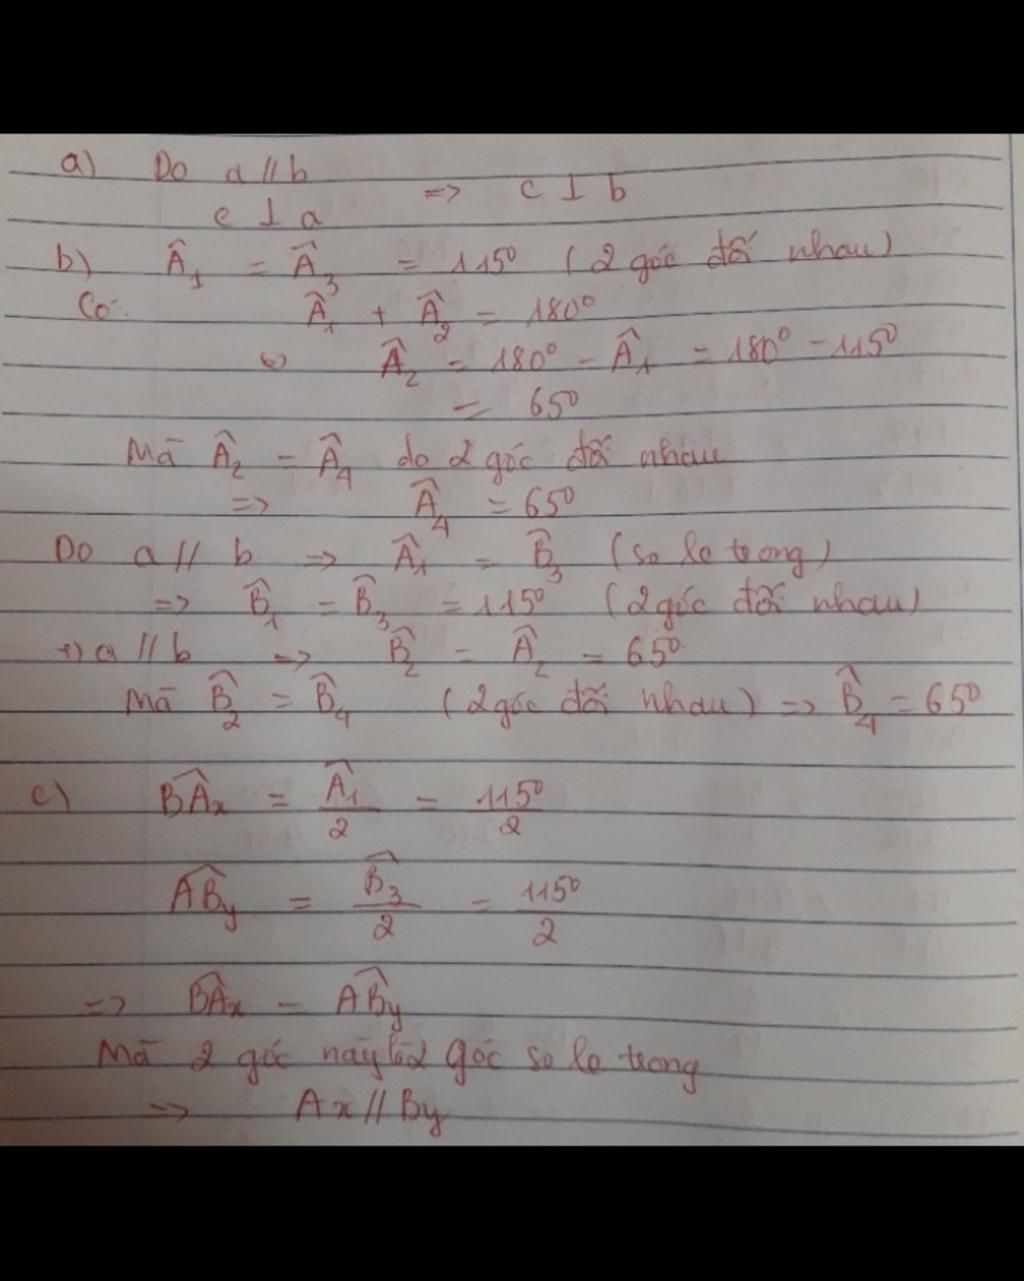 a) Do a // b
c ⊥ a => c ⊥ b
b) Â₁ = Â₃ = 115° (2 góc đối nhau)
Có: Â₁ + Â₂ = 180°
<=> Â₂ = 180° - Â₁ = 180° - 115°
= 65°
Mà Â₂ = Â₄ do 2 góc đối nhau
=> Â₄ = 65°
Do a // b => Â₁ = B̂₃ (so le trong)
=> B̂₁ = B̂₃ = 115° (2 góc đối nhau)
+) a // b => B̂₂ = Â₂ = 65°
Mà B̂₂ = B̂₄ (2 góc đối nhau) => B̂₄ = 65°
c) BÂx = Â₁/2 = 115°/2
AB̂y = B̂₃/2 = 115°/2
=> BÂx = AB̂y
Mà 2 góc này là 2 góc so le trong
=> Ax // By